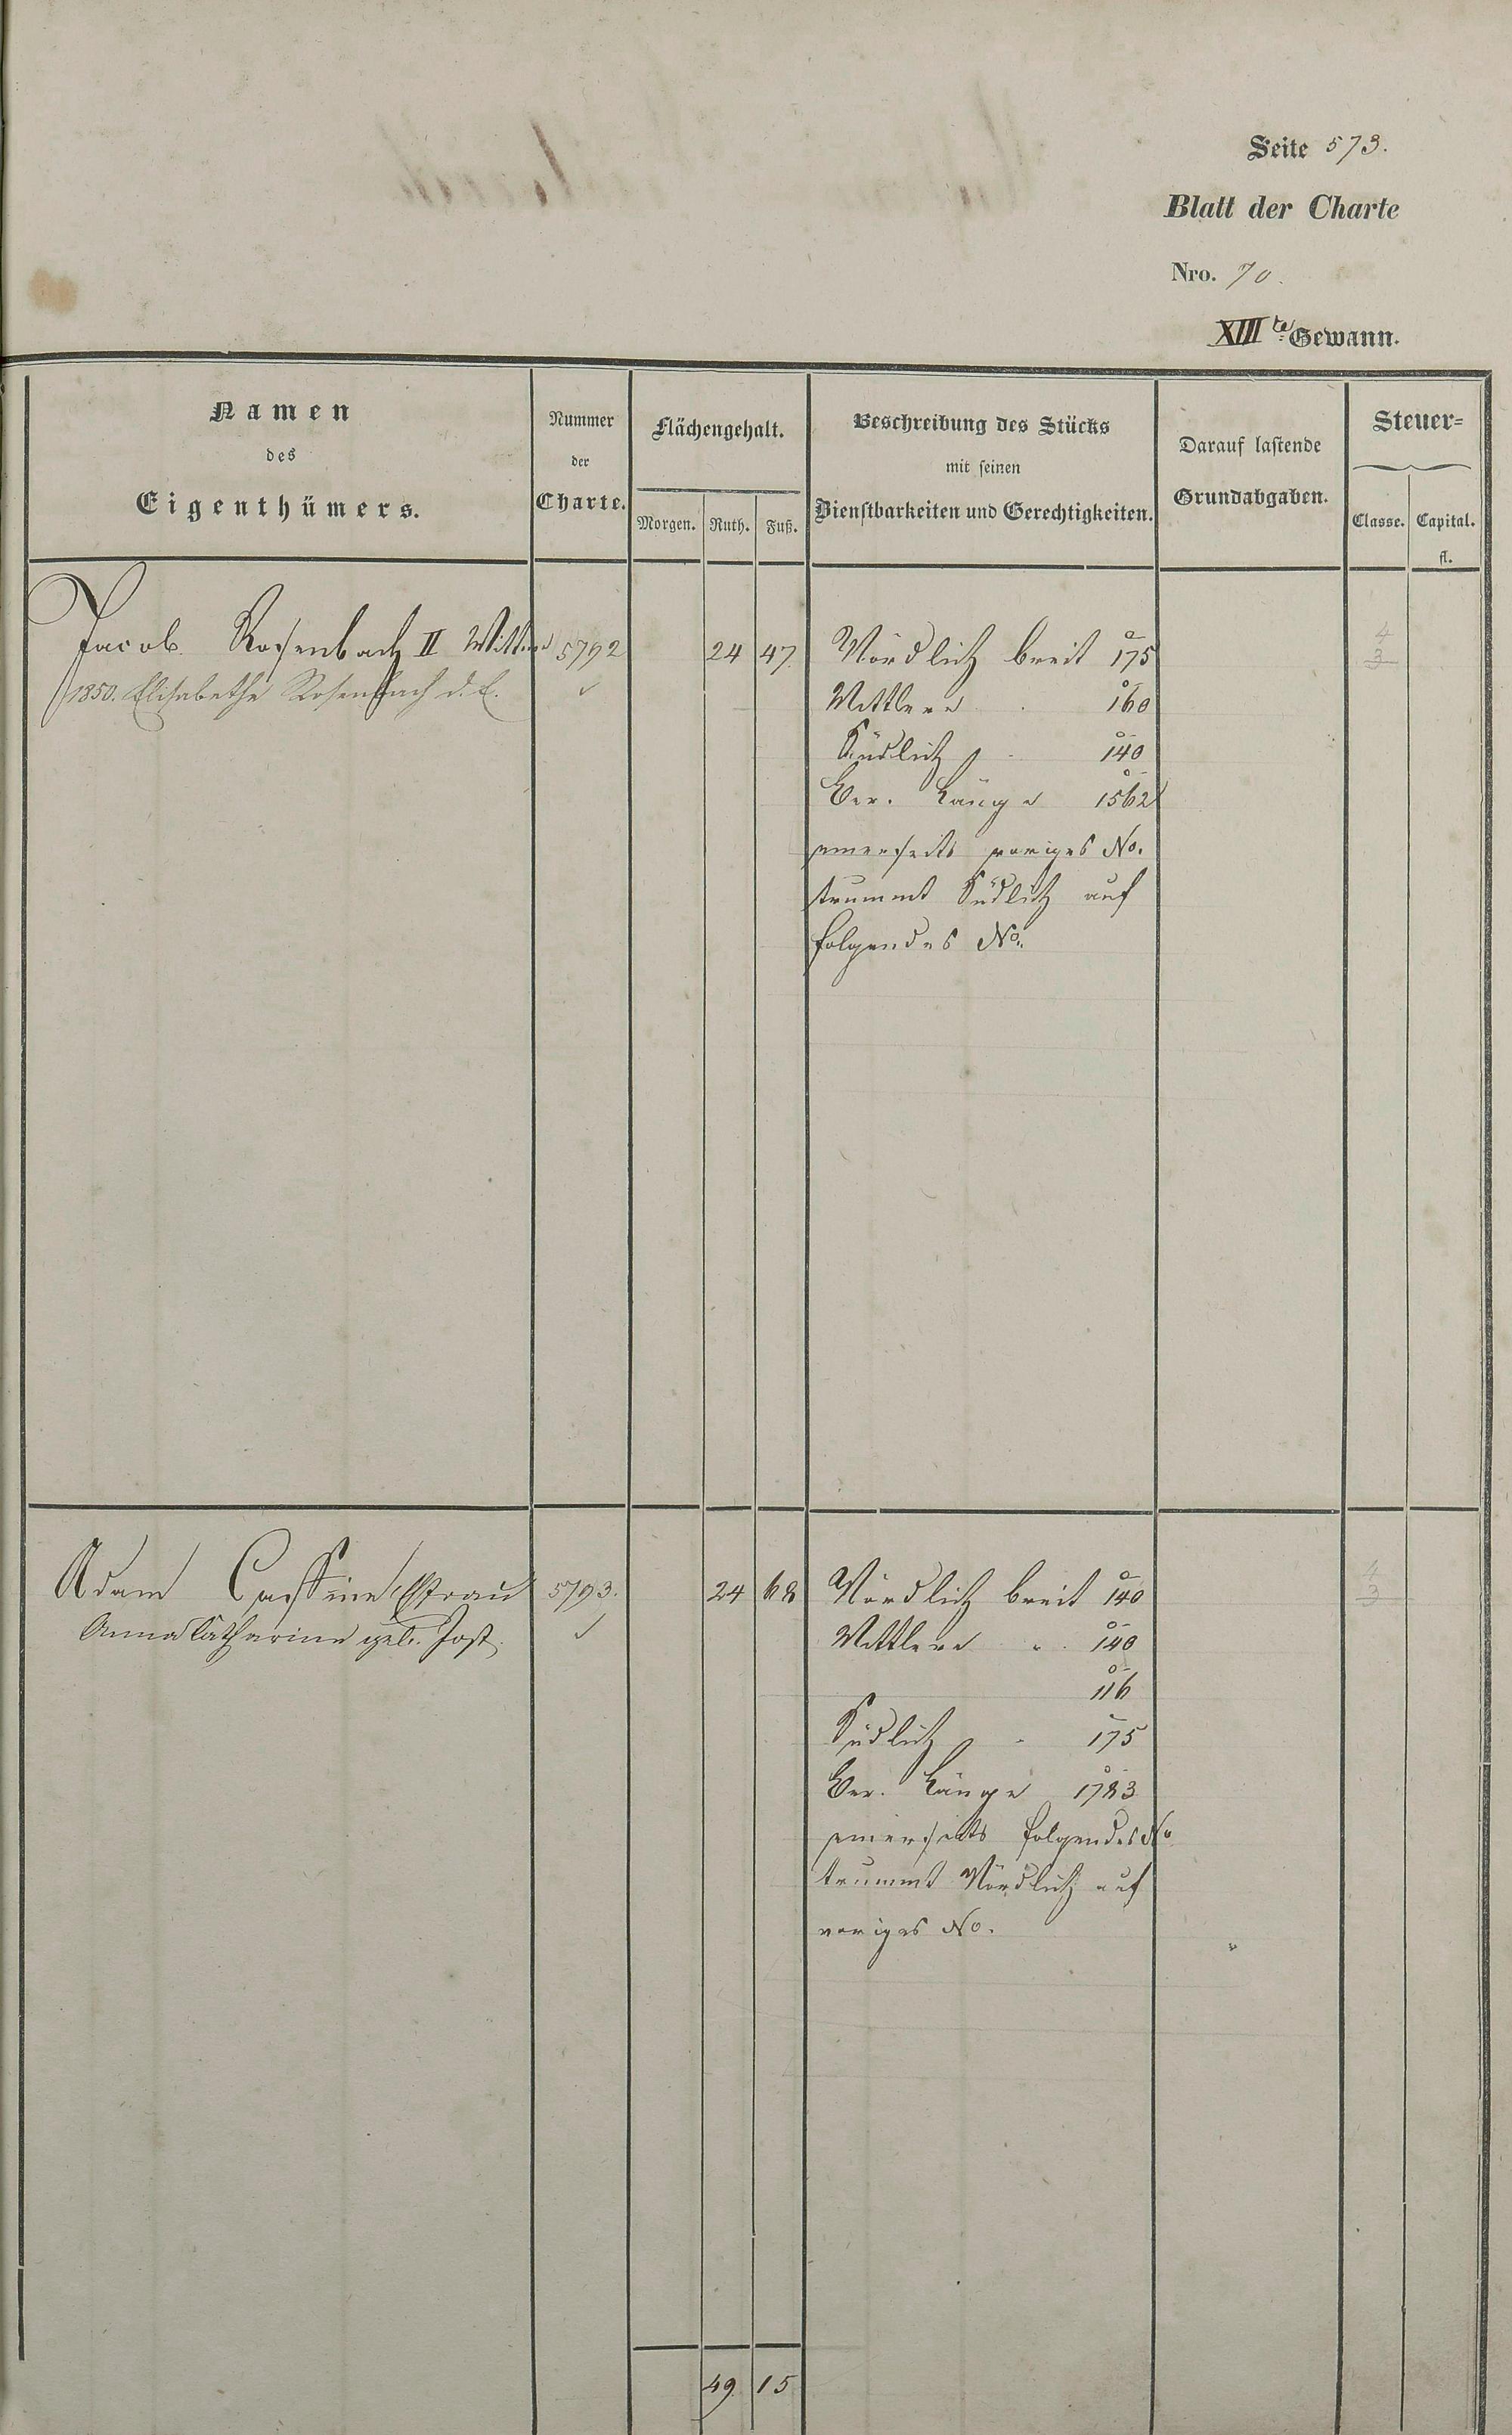 Seite 573.
Blatt der Charte
Nro. 70.
XIIIte Gewann.
Namen
des
Eigenthümers.
Nummer
der
Charte.
Flächengehalt.
Morgen. Ruth. Fuß.
Beschreibung des Stücks
mit seinen
Dienstbarkeiten und Gerechtigkeiten.
Darauf lastende
Grundabgaben.
Steuer-
Classe. Capital.
fl.
Jacob Rosenbach II 5792 24 47. Nördlich breit 175
1850. Elisabethe Rosenbach d. E. ✓ Mittlere 160
Südlich 140
Ber. Länge 1562
einerseits voriges No.
Südlich auf
folgendes No.
4
3
Adam 5793. 24 68 Nördlich breit 140
Anna Catharine geb. Jost. ✓ Mittlere " 140
116
Südlich 175
Ber. Länge 1783
einerseits folgendes No
Nördlich auf
voriges No.
4
3
49 15